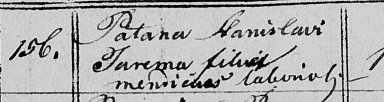 156. Patana Stanislavi
Jarema filius
mendicus laborios.
1